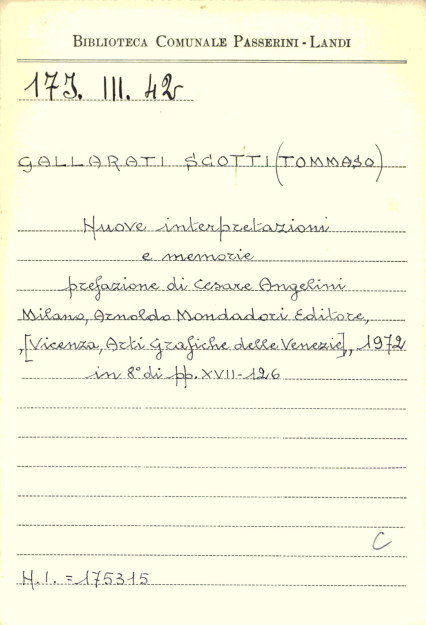 BIBLIOTECA COMUNALE PASSERINI - LANDI
17J. III. 42
GALLARATI SCOTTI (TOMMASO)
Nuove interpretazioni
e memorie
prefazione di Cesare Angelini
Milano, Arnoldo Mondadori Editore,
,[Vicenza, Arti Grafiche delle Venezie], 1972
in 8° di pp. XVII-126
C
N.I. = 175315